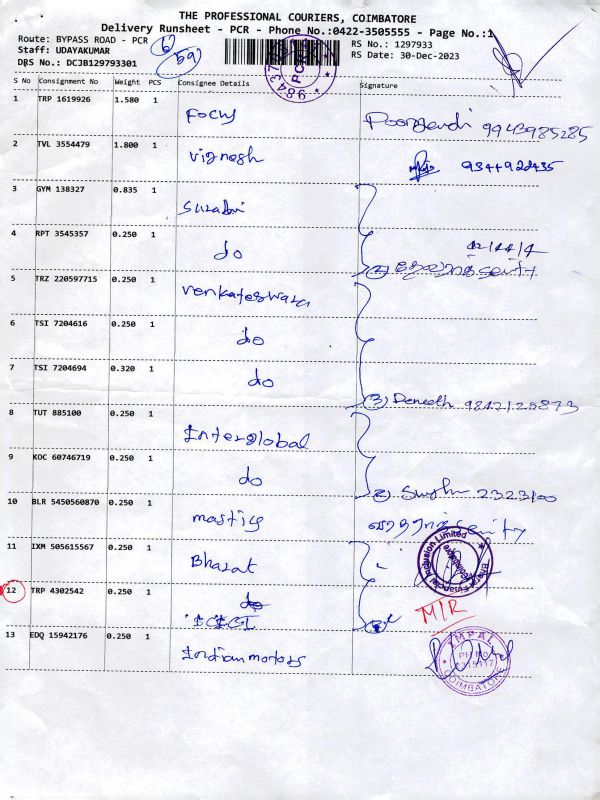 THE PROFESSIONAL COURIERS, COIMBATORE
Delivery Runsheet - PCR - Phone No.:0422-3505555 - Page No.:1
Route: BYPASS ROAD - PCR
RS No.: 1297933
Staff: UDAYAKUMAR
RS Date: 30-Dec-2023
DRS No.: DCJB129793301
S No Consignment No Weight PCS Consignee Details Signature
1 TRP 1619926 1.580 1 Focus 9943985285
2 TVL 3554479 1.800 1 Vignesh 9344922435
3 GYM 138327 0.835 1 Surabi
4 RPT 3545357 0.250 1 do
5 TRZ 220597715 0.250 1 Venkateswara
6 TSI 7204616 0.250 1 do
7 TSI 7204694 0.320 1 do 9842125873
8 TUT 885100 0.250 1 Interglobal
9 KOC 60746719 0.250 1 do 2323100
10 BLR 5450560870 0.250 1
11 IXM 505615567 0.250 1 Bharat
12 TRP 4302542 0.250 1 do
ICICI M/R
13 EDQ 15942176 0.250 1 Indian motors
IMPAL
COIMBATORE